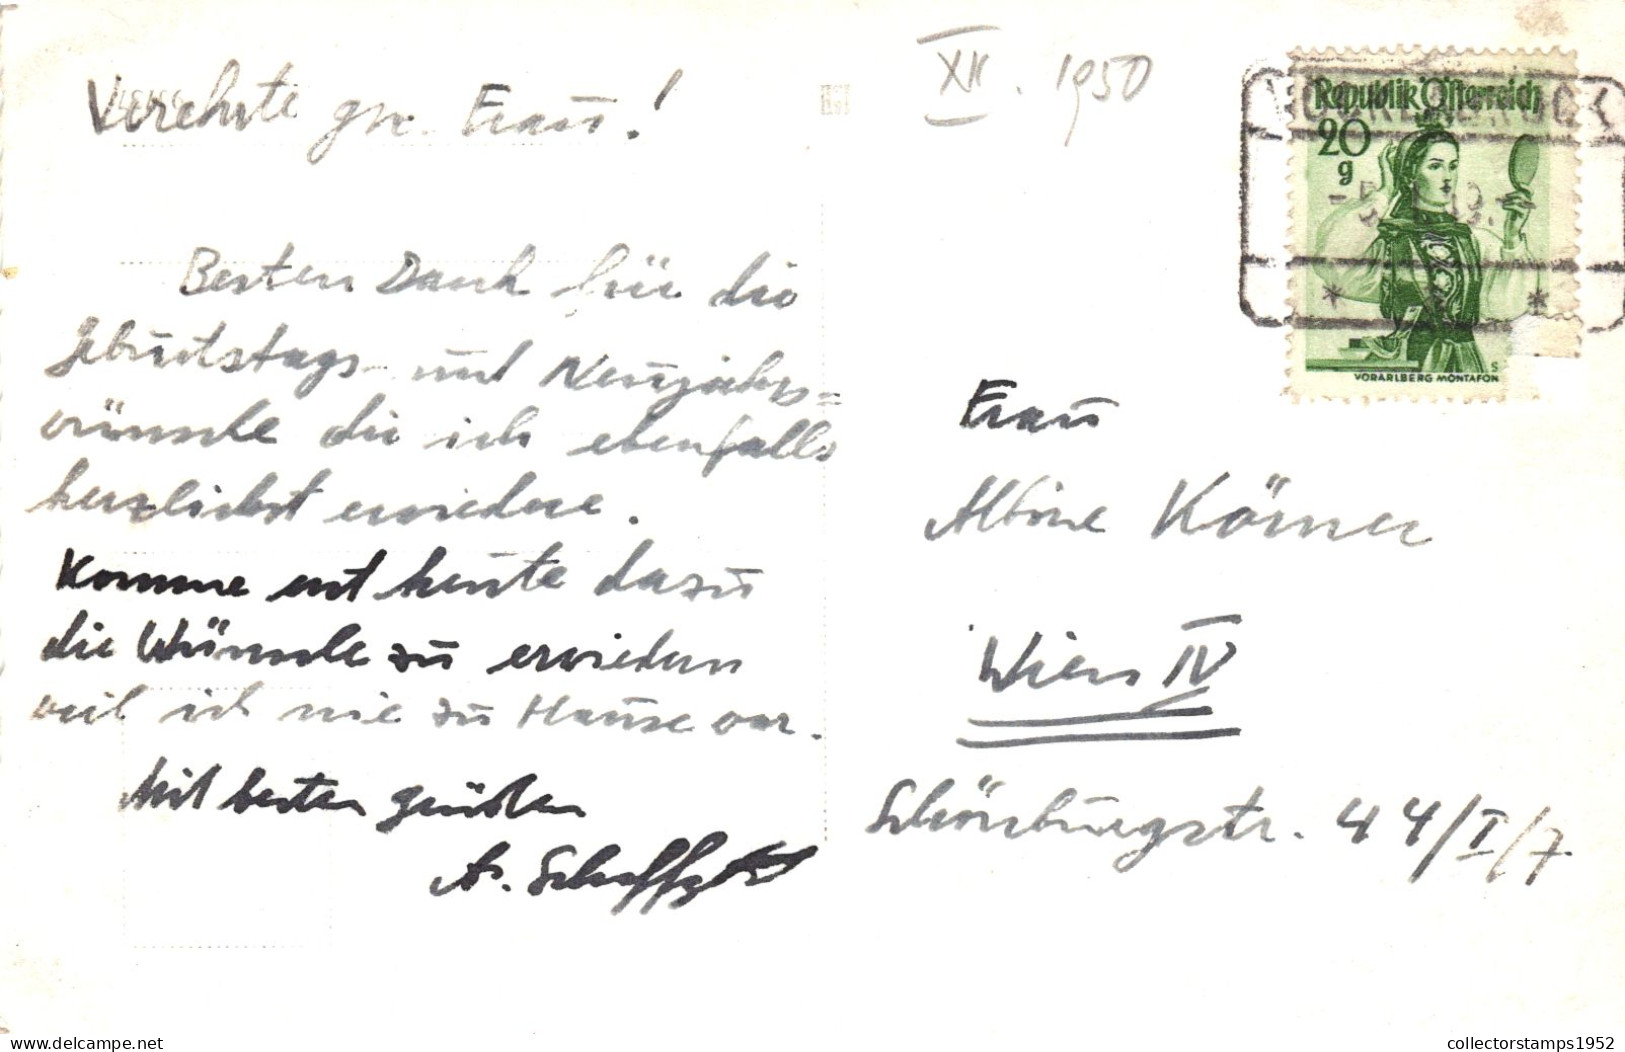 Verehrte gn. Frau!
XII. 1950
Republik Österreich
20
g
VORARLBERG MONTAFON
S
Besten Dank für die
Geburtstags- und Neujahrs=
wünsche die ich ebenfalls
herzlichst erwiedere.
Komme erst heute dazu
die Wünsche zu erwiedern
weil ich nie zu Hause war.
Mit besten Grüßen
A.
Frau
Albine Körner
Wien IV
Schönburgstr. 44/I/7
delcampe.net
collectorstamps1952